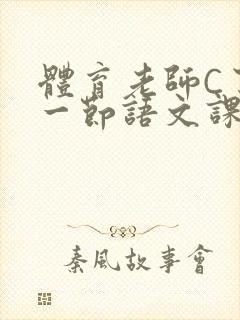 體育老師C
一節語文課
秦風故事會